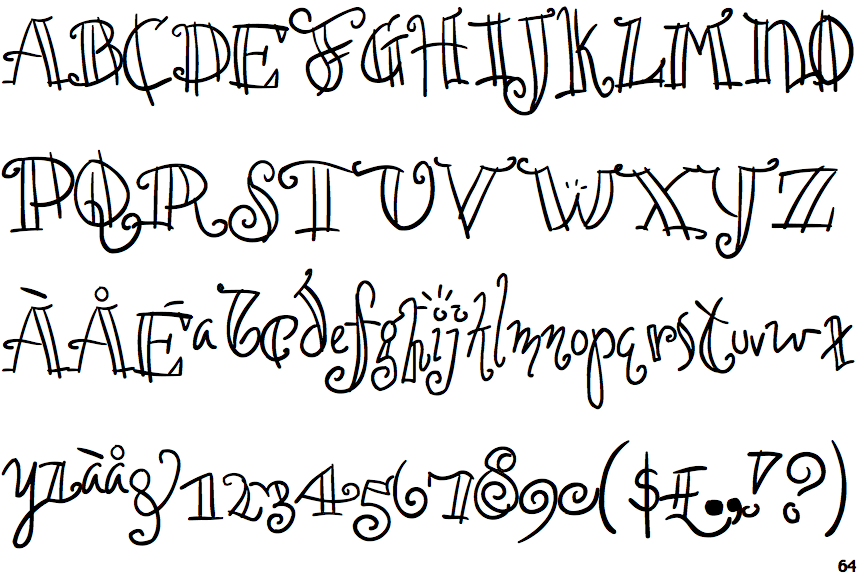 ABCDEFGHIJKLMNO
PQRSTUVWXYZ
ÀÅÉabcdefghijklmnopqrstuvwx
yzàå&1234567890($£.,!?)
64